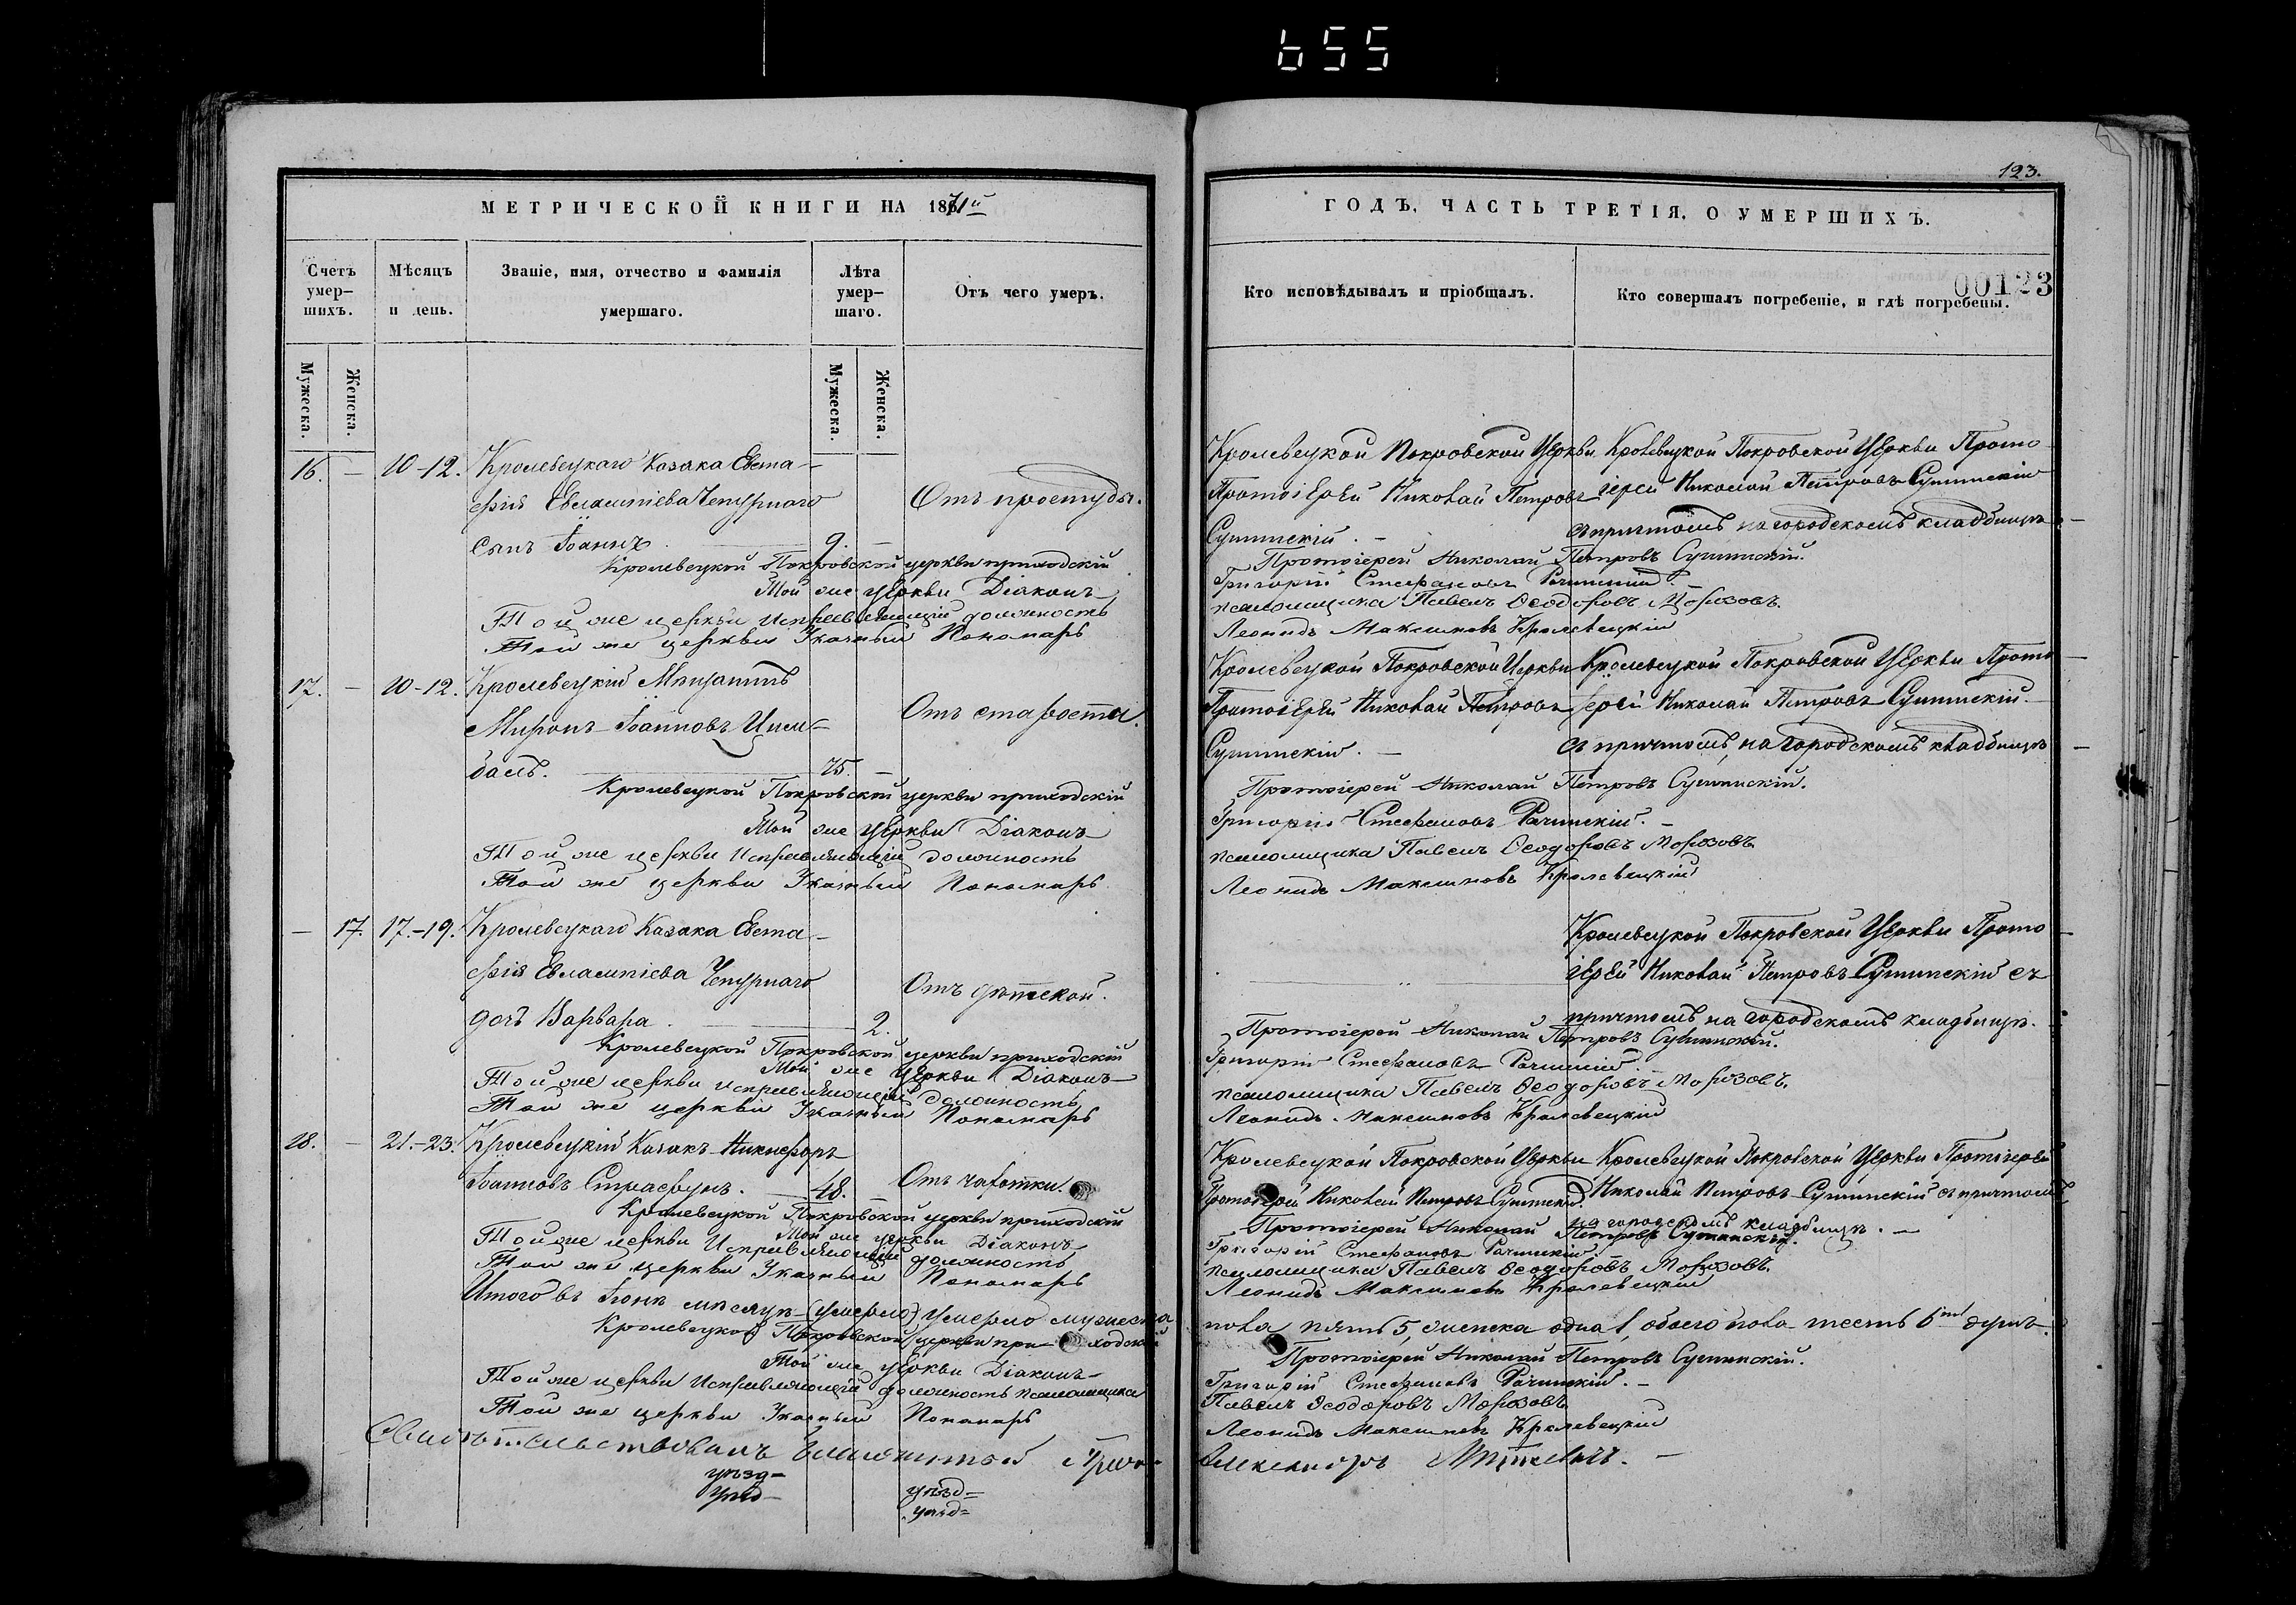 655
МЕТРИЧЕСКОЙ КНИГИ НА 1871й
Счетъ умер-шихъ.
Мѣсяцъ и день.
Званіе, имя, отчество и фамилія умершаго.
Лѣта умер-шаго.
Отъ чего умеръ.
Мужеска.
Женска.
Мужеска.
Женска.
16. — 10-12. Кролевецкаго Козака Евста-
фія Евлампіева Чепурнаго
Отъ простуды.
сынъ Іоаннъ 9. —
Кролевецкой Покровской церкви приходскій
Той же церкви Діаконъ
Той же церкви исправляющій должность
Той же церкви Указный Пономарь
17. — 10-12. Кролевецкій Мѣщанинъ
Миронъ Іоанновъ Цим-
Отъ старости.
балъ. 75. —
Кролевецкой Покровской церкви приходскій
Той же церкви Діаконъ
Той же церкви исправляющій должность
Той же церкви Указный Пономарь
— 17. 17.-19. Кролевецкаго Казака Евста-
фія Евлампіева Чепурнаго
Отъ дѣтской.
дочь Варвара. 2.
Кролевецкой Покровской церкви приходскій
Той же церкви Діаконъ
Той же церкви исправляющій должность
Той же церкви Указный Пономарь
18. — 21.-23. Кролевецкій Казакъ Никифоръ
Іоанновъ Страфунъ. 48. — Отъ чахотки.
Кролевецкой Покровской церкви приходскій
Той же церкви Діаконъ
Той же церкви Исправляющій должность
Той же церкви Указный Пономарь
Итого въ Іюнѣ мѣсяцѣ (умерло) умерло мужеска
Кролевецкой Покровской церкви приходскій
Той же церкви Діаконъ
Той же церкви Исправляющій должность псаломщика
Той же церкви Указный Пономарь
Свидѣтельствовалъ Благочинный
уѣзд-
уѣзд-
уѣзд=
уѣзд=
123.
ГОДЪ, ЧАСТЬ ТРЕТІЯ, О УМЕРШИХЪ.
00123
Кто исповѣдывалъ и пріобщалъ.
Кто совершалъ погребеніе, и гдѣ погребены.
Кролевецкой Покровской Церкви
Протоіерей Николай Петровъ
Сушинскій. —
Кролевецкой Покровской Церкви Прото
іерей Николай Петровъ Сушинскій
съ причтомъ на городскомъ кладбищѣ —
Протоіерей Николай Петровъ Сушинскій.
Григорій Стефановъ Рачинскій. —
псаломщика Павелъ Ѳеодоровъ Морозовъ.
Леонидъ Максимовъ Кролевецкій
Кролевецкой Покровской Церкви
Протоіерей Николай Петровъ
Сушинскій. —
Кролевецкой Покровской Церкви Прото —
іерей Николай Петровъ Сушинскій.
съ причтомъ, на городскомъ кладбищѣ —
Протоіерей Николай Петровъ Сушинскій.
Григорій Стефановъ Рачинскій. —
псаломщика Павелъ Ѳеодоровъ Морозовъ
Леонидъ Максимовъ Кролевецкій
Кролевецкой Покровской Церкви Прото —
іерей Николай Петровъ Сушинскій съ
причтомъ на городскомъ кладбищѣ.
Протоіерей Николай Петровъ Сушинскій.
Григорій Стефановъ Рачинскій.
псаломщика Павелъ Ѳеодоровъ Морозовъ.
Леонидъ Максимовъ Кролевецкій
Кролевецкой Покровской Церкви
Протоіерей Николай Петровъ Сушинскій.
Кролевецкой Покровской Церкви Протоіерей
Николай Петровъ Сушинскій съ причтомъ
на городскомъ кладбищѣ. —
Протоіерей Николай Петровъ Сушинскій.
Григорій Стефановъ Рачинскій. —
псаломщика Павелъ Ѳеодоровъ Морозовъ.
Леонидъ Максимовъ Кролевецкій
пола пять 5, женска одна 1, обоего пола шесть 6 душъ.
Протоіерей Николай Петровъ Сушинскій.
Григорій Стефановъ Рачинскій. —
Павелъ Ѳеодоровъ Морозовъ
Леонидъ Максимовъ Кролевецкій
Александръ